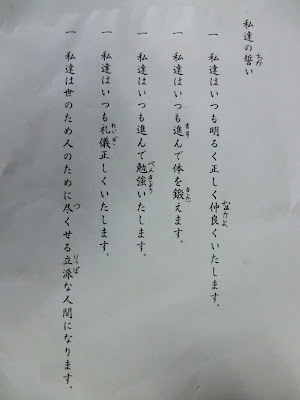 私達の誓い
一 私達はいつも明るく正しく仲良くいたします。
一 私達はいつも進んで体を鍛えます。
一 私達はいつも進んで勉強いたします。
一 私達はいつも礼儀正しくいたします。
一 私達は世のため人のために尽くせる立派な人間になります。